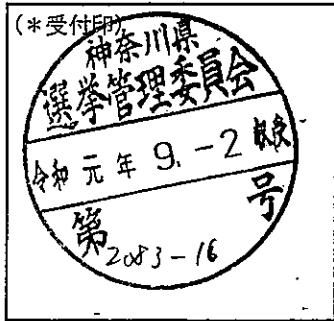 (*受付印)
神奈川県
選挙管理委員会
令和元年 9.-2 収受
第 号
2083-16